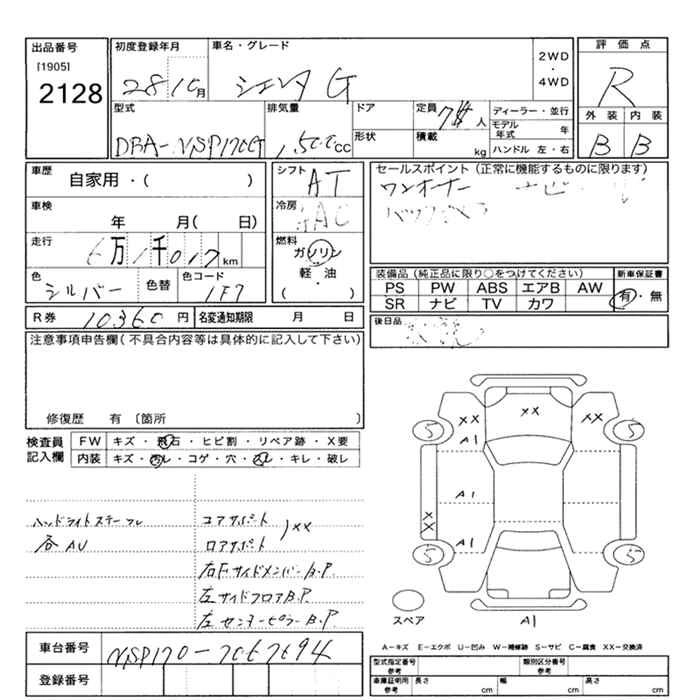 出品番号
[1905]
2128
初度登録年月
28 10月
車名・グレード
シエンタ G
2WD
・
4WD
評価点
R
外装 内装
B B
型式
DBA-NSP170G
排気量
1,500cc
ドア
形状
定員
7 人
積載
kg
ディーラー・並行
モデル年式 年
ハンドル 左・右
車歴
自家用・( )
車検
年 月( 日)
走行
6万1千017km
色
シルバー
色替
色コード
1F7
シフト
AT
冷房
AAC
燃料
ガソリン
軽・油
( )
セールスポイント(正常に機能するものに限ります)
ワンオーナー
バックカメラ
装備品(純正品に限り○をつけてください)
PS PW ABS エアB AW
SR ナビ TV カワ
新車保証書
有・無
R券 10,360 円
名変通知期限 月 日
後日品
注意事項申告欄(不具合内容等は具体的に記入して下さい)
修復歴 有 〔箇所 〕
検査員
記入欄
FW キズ・飛石・ヒビ割・リペア跡・X要
内装 キズ・汚レ・コゲ・穴・スレ・キレ・破レ
ハンドライトステー
各AU
コアサポート
ロアサポート
)××
右Fサイドメンバー B.P
左サイドフロア B.P
左センターピラー B.P
×× ×× ××
5 5
A1
A1
××
A1
5 5
スペア
A1
車台番号
NSP170-7067694
登録番号
A-キズ E-エクボ U-凹み W-補修跡 S-サビ C-腐食 XX-交換済
型式指定番号
参考
類別区分番号
参考
車庫証明用
参考
長さ cm
幅 cm
高さ cm